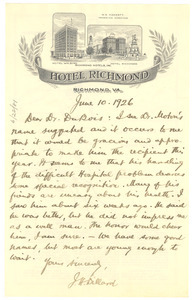 HOTEL RICHMOND
RICHMOND, VA.
June 10. 1926
Dear Dr. DuBois: I see Dr. Moton's
name suggested and it occurs to me
that it would be gracious and appro-
priate to make him the recipient this
year. It seems to me that his handling
of the difficult Hospital problem deserves
some special recognition. Many of his
friends are concerned about his health; I
saw him about six weeks ago. He said
he was better, but he did not impress me
as a well man. The honor would cheer
him, I am sure. — We have some good
names, but most are young enough to
wait.
Yours sincerely,